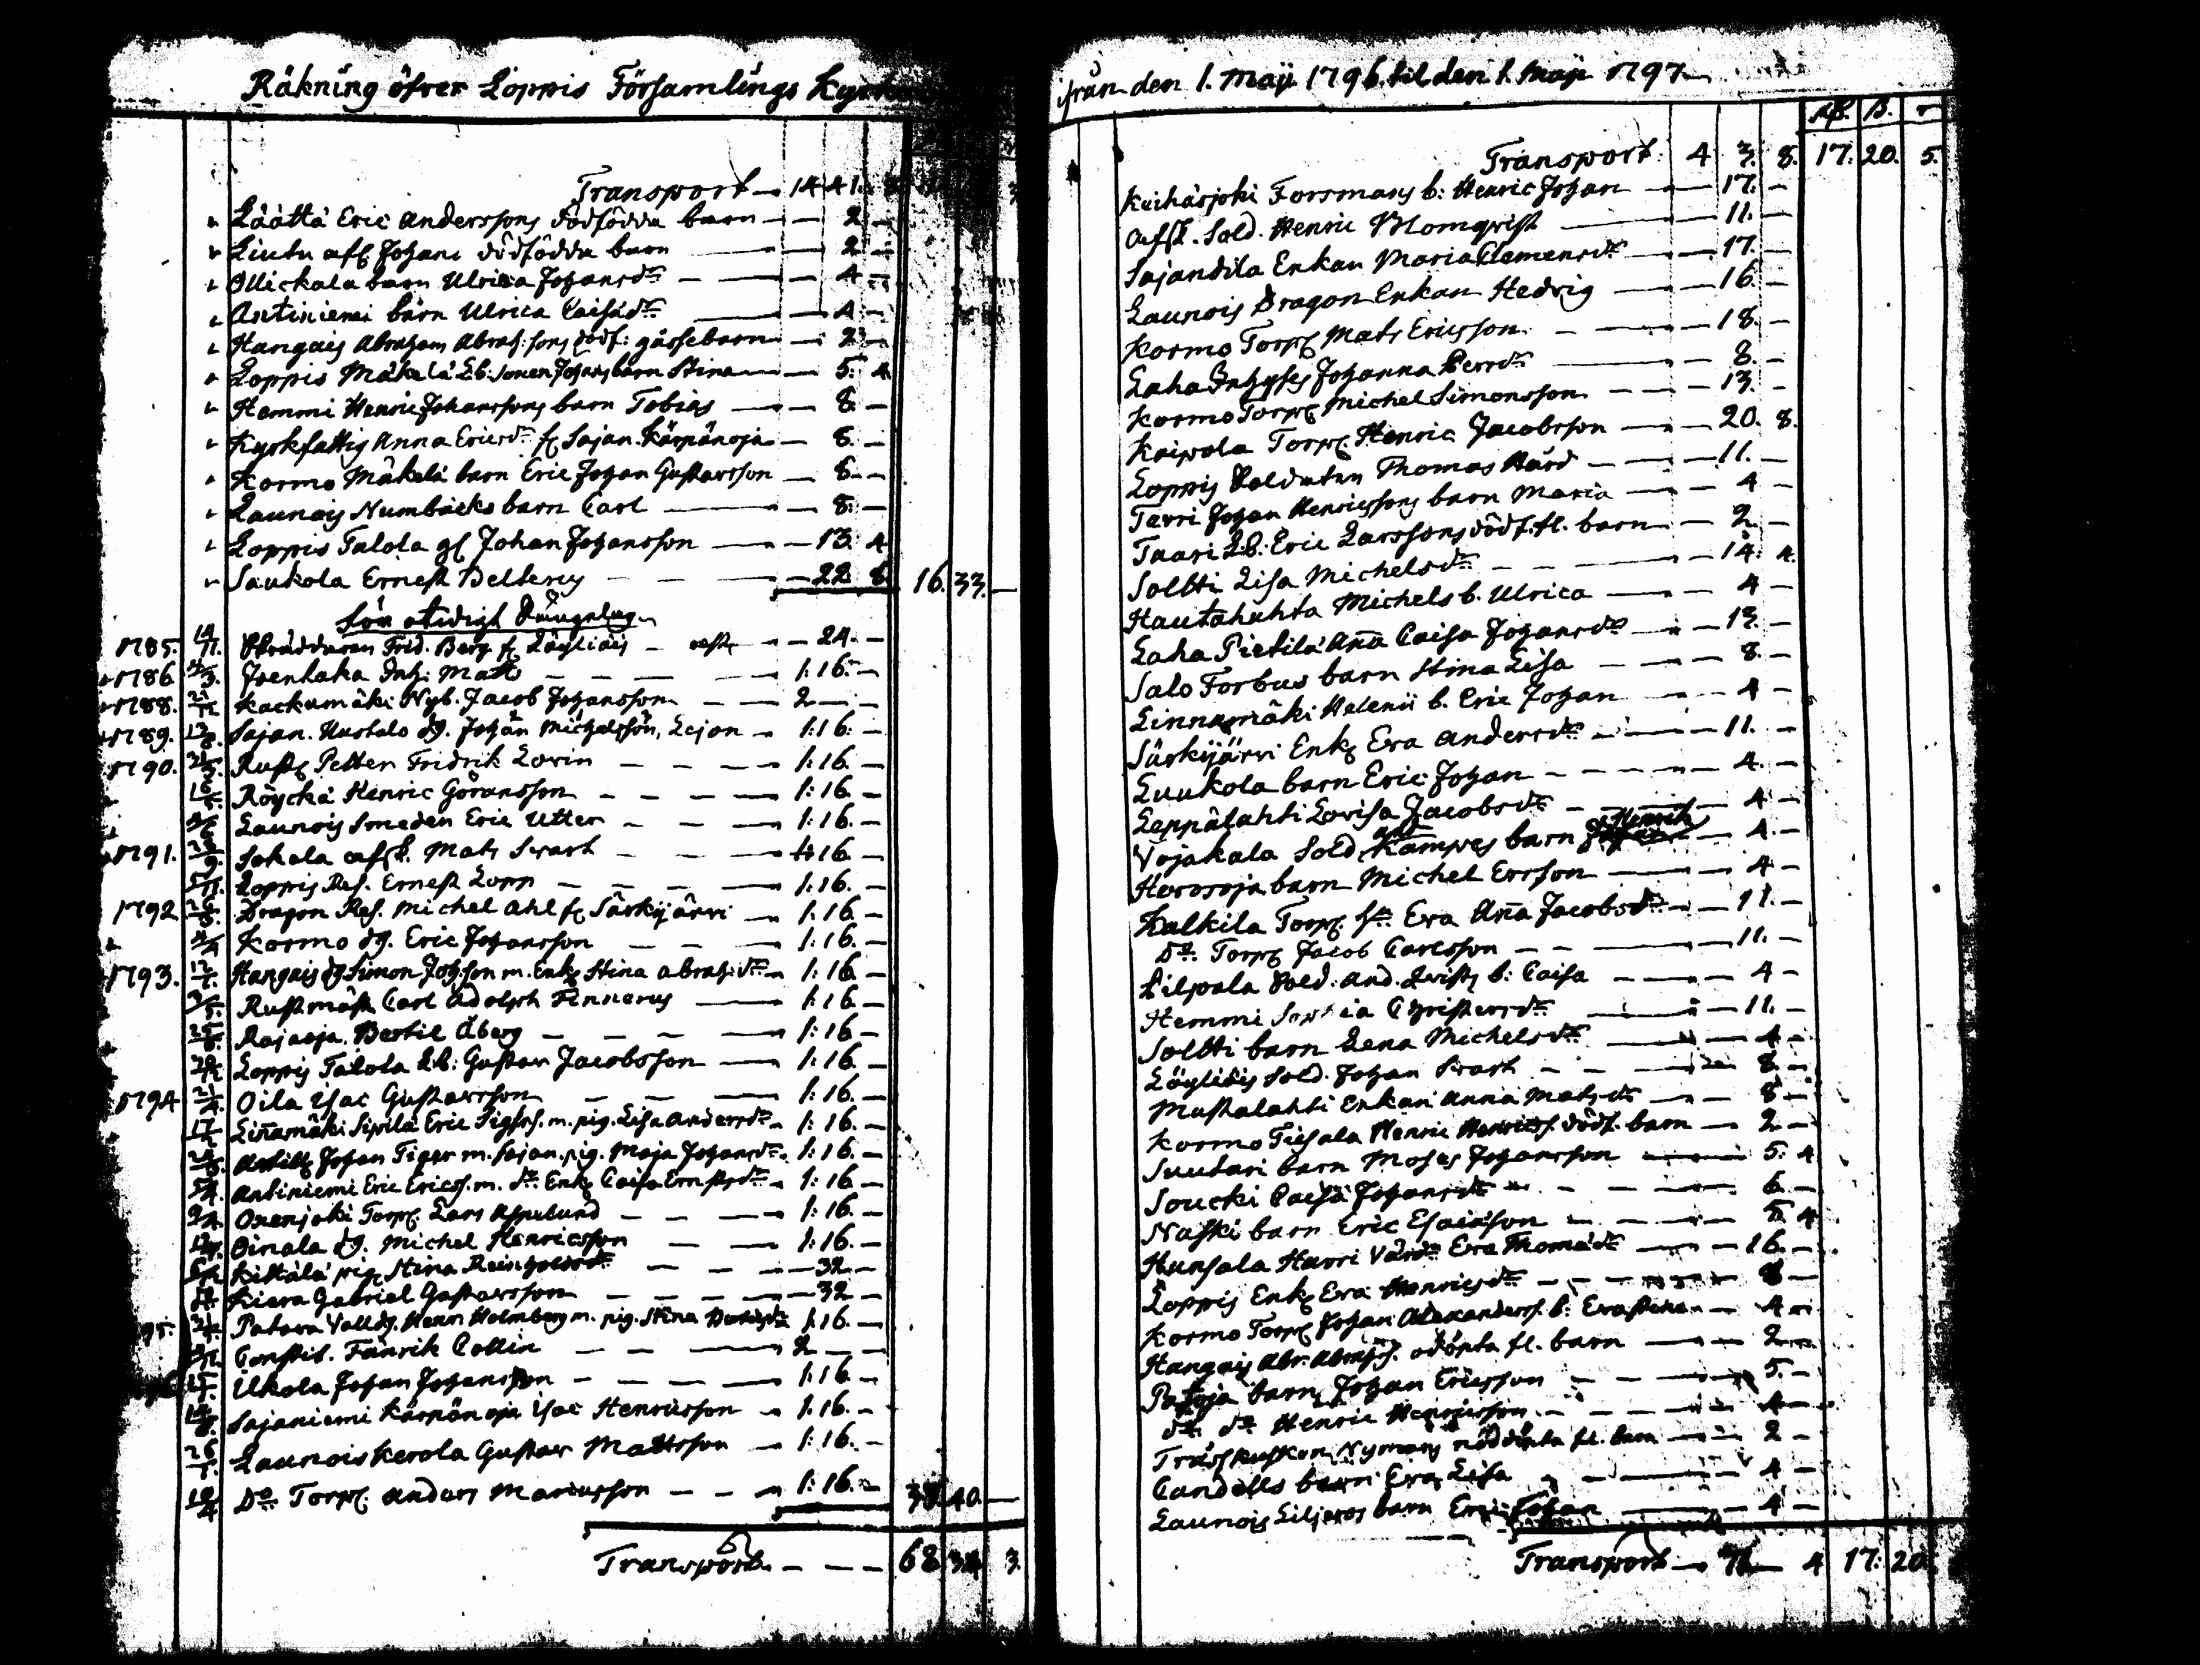 Räkning öfver Loppis Församlings Kyrko
Transport — 14 41. 8
Läättä Eric Anderssons dödfödda barn — 2 —
Liutu afl Johans dödfödda barn — 2 —
Ollickala barn Ulrica Johansdr — 4 —
Antiniemi barn Ulrica Caisädr — 4 —
Hangais Abraham Abrah:sons dödf: gåssebarn — 2 —
Loppis Mäkelä Lb: sonen Johans barn Stina — 5. 4.
Hemmi Henric Johanssons barn Tobias — 8 —
Kyrkfattig Anna Ericsdr fr Sajan. Kärpänoja — 8 —
Kormo Mäkelä barn Eric Johan Gustavsson — 8 —
Launois Numbäcks barn Carl — 8 —
Loppis Talola gl Johan Johansson — 13. 4
Saukola Ernest Bellerus — 22 8. 16. 33. —
1785. 14/11. Skräddaren Frid. Berg fr Läyliäis — — 24. —
1786 Joentaka Inh: Matts — 1: 16. —
1788. Kackumäki Nyb. Jacob Johansson — 2 —
1789. 13/8. Sajan. Hustalo dg. Johan Michelsson, Lejon — 1: 16.
1790. Rustl Petter Fridrik Lorin — 1: 16. —
Röyckä Henric Göransson — 1: 16. —
Launois Smeden Eric Utter — 1: 16. —
1791. Sokala afsk. Mats Svart — 1: 16. —
5/11. Loppis Ref. Ernest Lopp — 1: 16. —
1792 Dragon Ref. Michel Ahl fr Särkijärvi — 1: 16. —
Kormo dg. Eric Johansson — 1: 16. —
1793. Hangais dg Simon Joh:son m. Enk Stina Abrah:dr — 1: 16. —
Rustmäst Carl Adolph Fennerus — 1: 16 —
Rajaoja Bertil Åberg — 1: 16 —
Loppis Talola Lb: Gustav Jacobsson — 1: 16. —
1794 Oila Isac Gustavsson — 1: 16. —
Linnamäki Sipilä Eric Sigfrs. m. pig. Lisa Andersdr — 1: 16. —
Johan Tiger m. Sajan. pig. Maja Johansdr — 1: 16. —
Antiniemi Eric Erics. m. do Enk Caisa Ernstsdr — 1: 16 —
9/4. Oxenjoki Torp Lars Asplund — 1: 16. —
Oinala dg. Michel Henricsson — 1: 16. —
Kittälä pig Stina — 32 —
Kiera Gabriel Gustavsson — 32 —
95. Patova Henr Holmberg m. pig. Stina — 1: 16. —
Constit. Fänrik Collin — 2 —
Ilkola Johan Johansson — 1: 16. —
Sajaniemi Kärpänoja Isac Henricsson — 1: 16. —
Launois Kerola Gustav Mattsson — 1: 16. —
10/4 Do Torp. Anders Mariusson — 1: 16. — 40. —
Transport — 68. 34. 3.
från den 1. Maji 1796. til den 1. Maji 1797.
Rd. ß. r
Transport 4 3. 8. 17. 20. 5.
Keihäsjoki Forsmans b: Henric Johan — 17. —
Afsk. Sold. Henric Blomqvist — 11. —
Sajandila Enkan Maria Clemensdr — 17. —
Launois Dragon Enkan Hedvig — 16. —
Kormo Torp Mats Ericsson — 18. —
Laha Inhyses Johanna Persdr — 8. —
Kormo Torp Michel Simonsson — 13. —
Kaipola Torp Henric Jacobsson — 20. 8.
Loppis Soldaten Thomas Hård — 11. —
Tervi Johan Henricssons barn Maria — 4 —
Taari Lb. Eric Larssons dödf. fl. barn — 2 —
Soltti Lisa Michelsdr — 14. 4.
Hautahuhta Michels b. Ulrica — 4 —
Laha Pietilä Anna Caisa Johansdr — 13. —
Salo Forbus barn Stina Lisa — 8. —
Linnamäki Helenii b. Eric Johan — 4 —
Särkijärvi Enk Eva Andersdr — 11. —
Luukola barn Eric Johan — 4. —
Leppälahti Lovisa Jacobsdr — 4 —
Vojakala Sold. Kämpes barn Henrik — 4. —
Horsoja barn Michel Ersson — 4 —
Kalkila Torp. Eva Anna Jacobsdr — 11. —
Do. Torp Jacob Carlsson — 11. —
Lilpala Sold. And. Qvists b: Caisa — 4 —
Hemmi Sophia Christersdr — 11. —
Soltti barn Lena Michelsdr — 4 —
Löyliäis Sold. Johan Svart — 8 —
Mustalahti Enkan Anna Matsdr — 8 —
Kormo Henric Henrics. dödf. barn — 2 —
Suutari barn Moses Johansson — 5. 4
Soucki Caisa Johansdr — 6. —
Naski barn Eric Esaiasson — 5. 4
Hunsala Harri Eva Thomædr — 16. —
Loppis Enk Eva Henricsdr — 8 —
Kormo Torp Johan Alexanders. b: Eva Stina — 4 —
Hangais Abr. Abrahs. odöpta fl. barn — 2 —
barn Johan Ericsson — 5. —
do. do Henric Henricsson — 4 —
Nymans nöddöpta fl. barn — 2 —
Candells barn Eva Lisa — 4 —
Launois barn Eric Johan — 4 —
Transport — 4 17. 20.